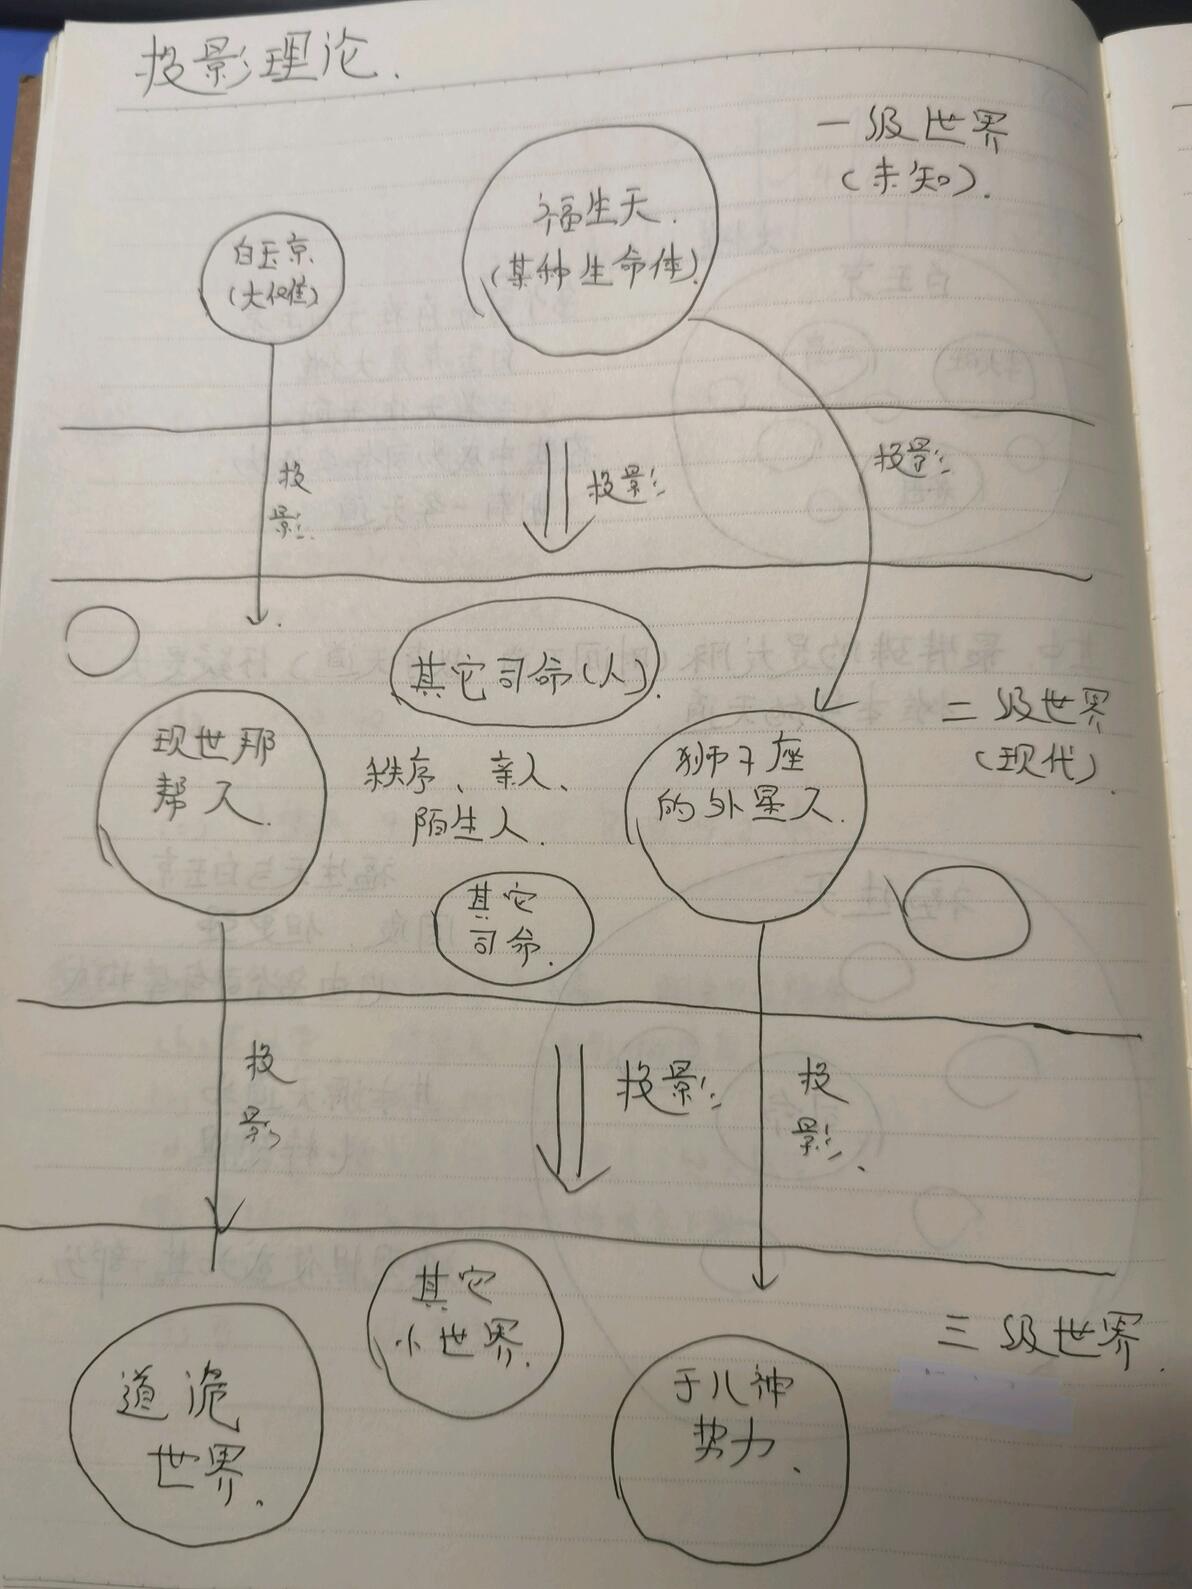 投影理论.
一级世界
(未知).
福生天.
(某种生命体)
白玉京
(大傩)
投
影.
投影
投影
其它司命(人).
二级世界
(现代)
现世那
帮人.
秩序、亲人、
陌生人.
狮子座
的外星人.
其它
司命.
投
影
投影
投
影.
其它
小世界.
三级世界.
道诡
世界.
于儿神
势力.